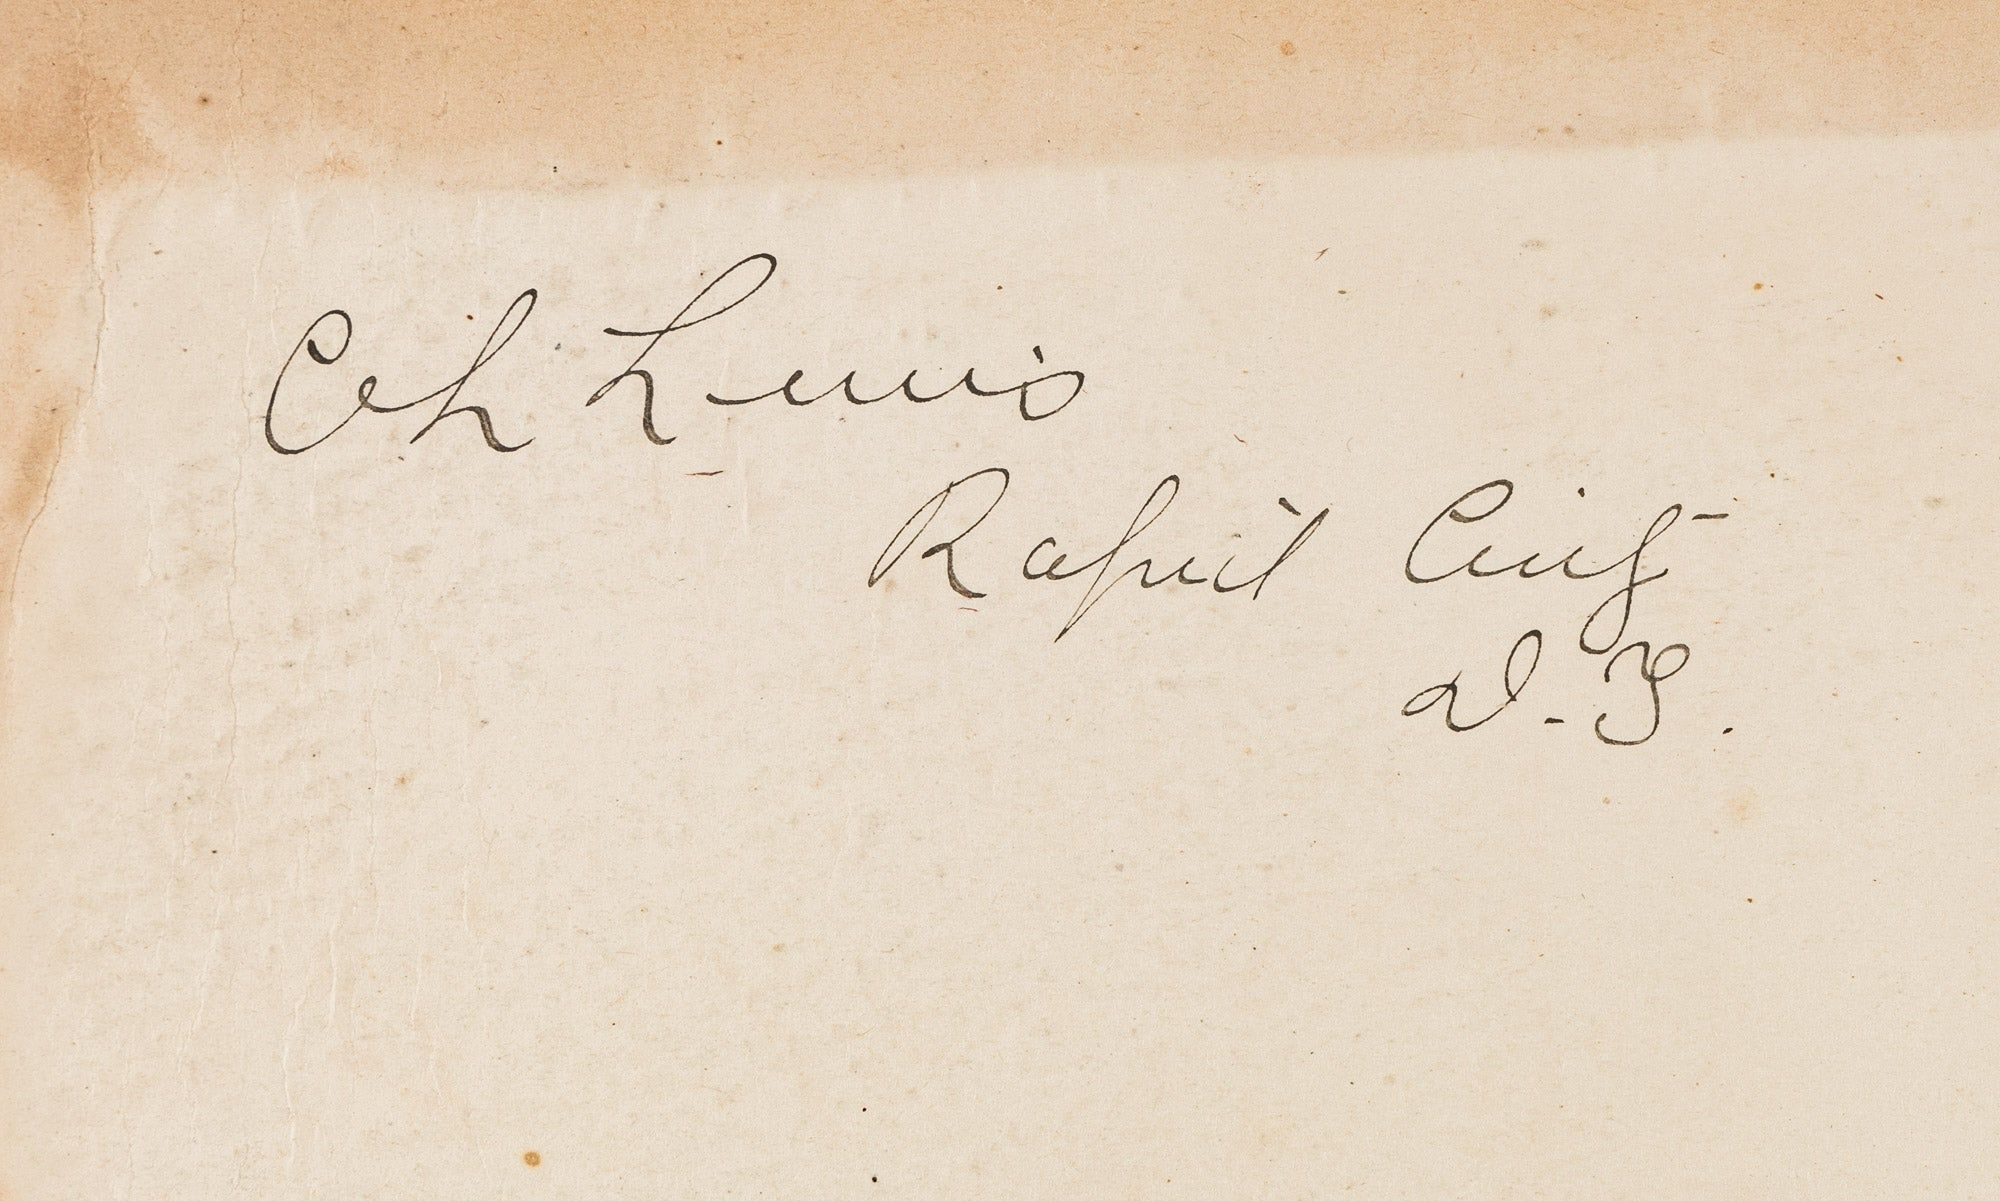 C H Lewis
Rapid City
D. T.